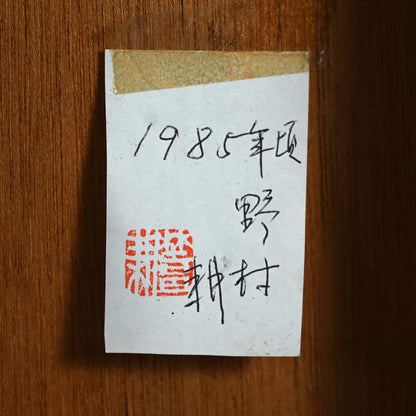 1985年頃
野
耕村